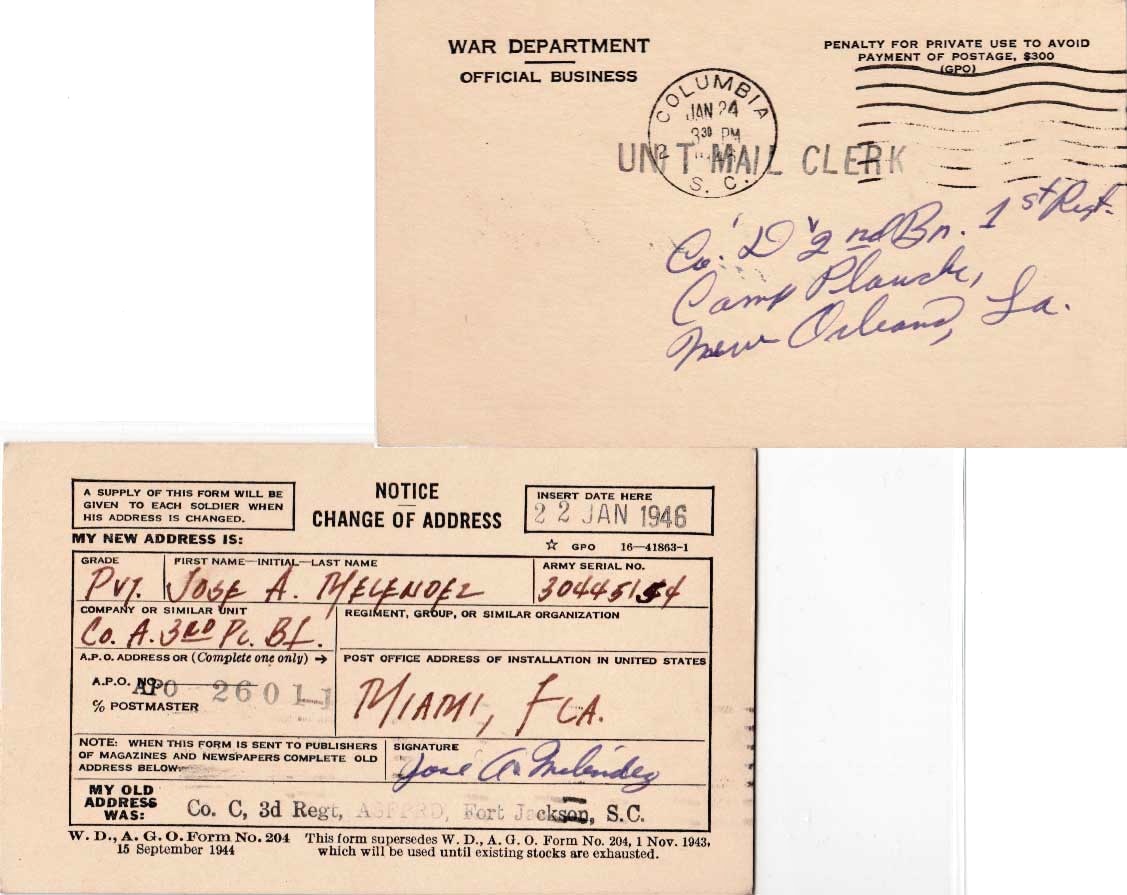 WAR DEPARTMENT
OFFICIAL BUSINESS
PENALTY FOR PRIVATE USE TO AVOID
PAYMENT OF POSTAGE, $300
(GPO)
COLUMBIA
JAN 24
3 30 PM
S. C.
2
UNIT MAIL CLERK
Co. "D" 2nd Bn. 1st Regt.
Camp Plauche,
New Orleans, La.
A SUPPLY OF THIS FORM WILL BE
GIVEN TO EACH SOLDIER WHEN
HIS ADDRESS IS CHANGED.
NOTICE
CHANGE OF ADDRESS
INSERT DATE HERE
22 JAN 1946
MY NEW ADDRESS IS:
☆ GPO 16—41863-1
GRADE
FIRST NAME—INITIAL—LAST NAME
ARMY SERIAL NO.
Pvt. JOSE A. MELENDEZ 30445154
COMPANY OR SIMILAR UNIT
REGIMENT, GROUP, OR SIMILAR ORGANIZATION
Co. A. 3RD
A.P.O. ADDRESS OR (Complete one only) →
POST OFFICE ADDRESS OF INSTALLATION IN UNITED STATES
A.P.O. NO.
APO 26011
% POSTMASTER
MIAMI, FLA.
NOTE: WHEN THIS FORM IS SENT TO PUBLISHERS
OF MAGAZINES AND NEWSPAPERS COMPLETE OLD
ADDRESS BELOW:
SIGNATURE
Jose A. Melendez
MY OLD
ADDRESS
WAS:
Co. C, 3d Regt, ASFPRD, Fort Jackson, S.C.
W. D., A. G. O. Form No. 204
15 September 1944
This form supersedes W. D., A. G. O. Form No. 204, 1 Nov. 1943,
which will be used until existing stocks are exhausted.